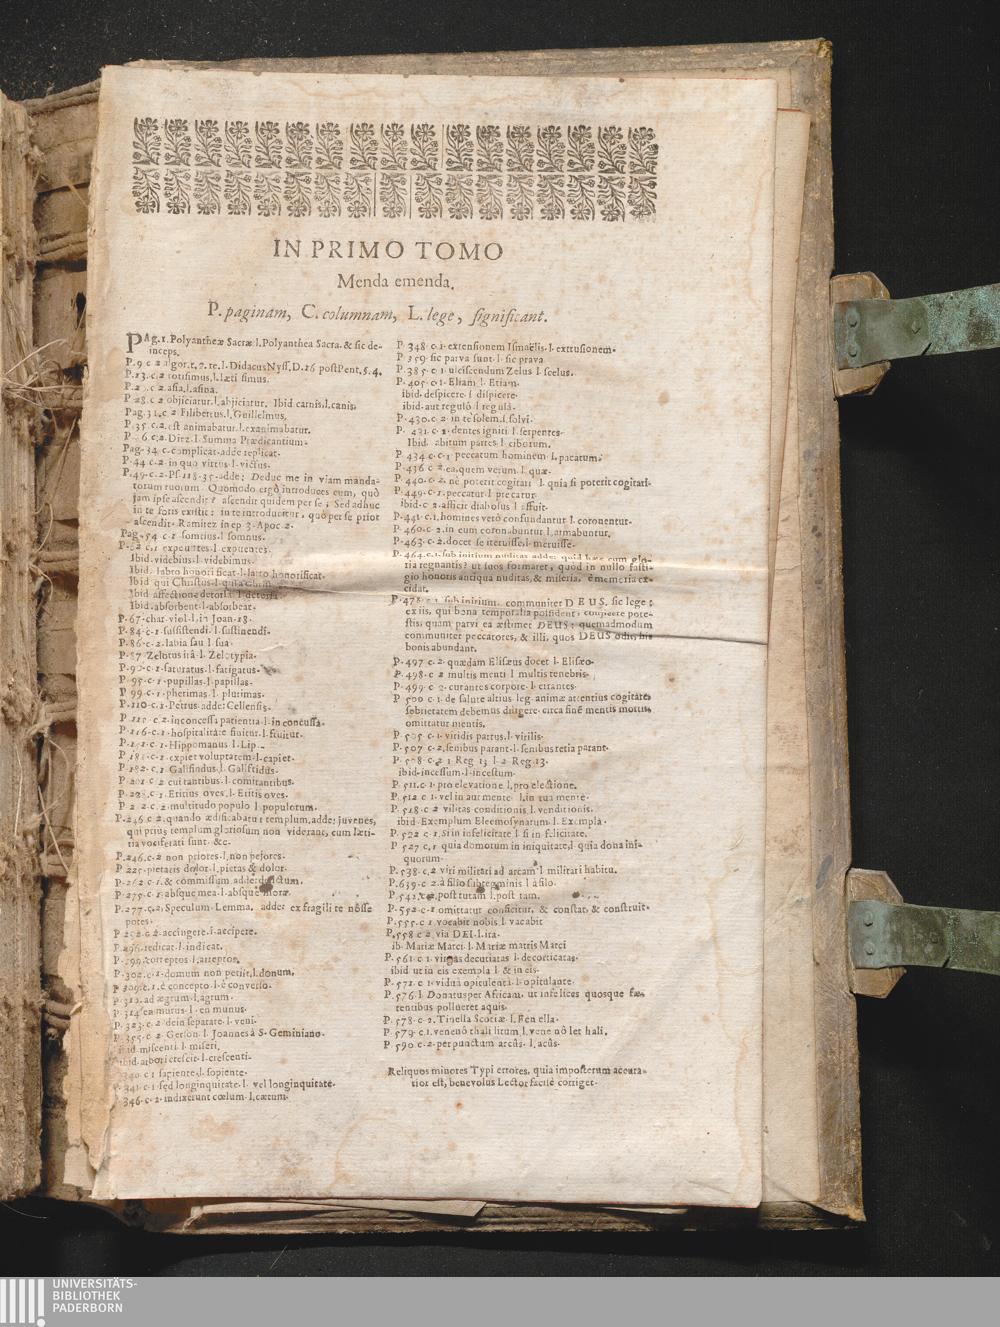 IN PRIMO TOMO
Menda emenda.
P. paginam, C. columnam, L. lege, significant.
PAg.1.Polyantheæ Sacræ l.Polyanthea Sacra. & sic de-
inceps.
P.9 c 2 algor.t.7.te.l.Didacus Nyss.D.16 post Pent.5.4.
P.13.c.2 totisimus.l.læti simus.
c.2 asia.l.asina.
P 28 c 2 objiciatur.l.abjiciatur. Ibid carnis.l.canis.
Pag.31.c 2 Filibertus.l.Guillelmus.
P.35 c.2.est animabatur.l.exanimabatur.
c.2. Diez.l.Summa Prædicantium.
Pag.34 c.complicat.adde replicat.
P.44 c.2.in quo virtus.l.victus.
P.49.c.2.Ps.118.35.adde: Deduc me in viam manda-
torum tuorum. Quomodo ergò introduces eum, quò
jam ipse ascendit? ascendit quidem per se; Sed adhuc
in te foris existit: in te introducitur, quò per se prior
ascendit. Ramirez in ep 3.Apoc 2.
Pag.54 c 1 somtius.l somnus.
c.1 expeuntes.l.expuentes.
Ibid.videbius.l.videbimus.
Ibid.labro honori ficat.l.labro honorificat.
Ibid qui Christus.l.quia
Ibid affectione detorta.l.detorsa
Ibid.absorbent.l.absorbeat.
P.67.char.viol.l.in Joan.18.
P.84.c.1 sussistendi.l.sustinendi.
P.86.c.2.labia sau l sua.
P.87 Zelotus itâ.l.Zelotypia.
c.1.saturatus.l.fatigatus.
P.95.c.1.pupillas.l.papillas.
P 99.c.1.pherimas.l.plurimas.
P.110.c.1.Petrus.adde: Cellensis.
c.2.inconcessa patientia.l.in concussa.
P.116.c.1.hospitalitate finitur.l.fruitur.
c.1.Hippomanus l.Lip
c.1.expiet voluptatem.l.capiet.
P.182.c.1 Galifindus.l.Galistidus.
c 2 cui tantibus.l.comitantibus.
P.228.c.1.Etitius oves.l.Etitis oves.
c.2.multitudo populo l.populorum.
P.246 c 2.quando ædificabatur templum.adde: juvenes,
qui priùs templum gloriosum non viderant, cum læti-
tia vociferati sunt. &c.
P.246.c.2 non priores.l.non pejores.
P 225.pietatis dolor.l.pietas & dolor.
c.1.& commissum.adde:
P 275.c.1.absque mea.l.absque
P.277.c.2.Speculum Lemma. adde: ex fragili te nôsse
potes.
c.2.accingere.l.accipere.
P.296.redicat.l.indicat.
P.299.correptos.l.arreptos.
P.302.c.2.domum non petiit.l.donum.
P 309.c.1.è concepto l.è converso.
P.312.ad ægrum.l.agrum.
P.314 ea murus.l.en munus.
P.323.c.2 dein separate.l.veni.
P.355.c.2.Gerson.l. Joannes à S.Geminiano.
Ibid.miscenti.l.miseri.
Ibid.arbori crescit.l.crescenti.
P.340.c 1 sapiente.l.sopiente.
P.341.c.1.sed longinquitate.l. vel longinquitate.
P.346.c.2.indixerunt cœlum.l.cætum.
P 348.c.1.extensionem Ismaëlis.l.extrusionem.
P 359.sic parva sunt.l.sic prava
P 385.c 1 ulciscendum Zelus l.scelus.
P 405.c.1.Eliam.l.Etiam.
ibid.despicere.l dispicere.
ibid.aut regulô l regulâ.
P.430.c.2.in te solem.l.solvi.
P. 431.c.2.dentes igniti l.serpentes.
Ibid. abitum partes.l.ciborum.
P 434 c.c.1 peccatum hominem l.pacatum.
P 436 c 2.ea.quem verum.l.quæ.
P 440.c.2.nè poterit cogitari l.quia si poterit cogitari.
P.449.c.1.peccatur.l precatur.
ibid.c 2.afficit diabolus l affuit.
P.441.c.1.homines verò confundantur l.coronentur.
P.460.c.2.in eum coronabuntur l.armabuntur.
P.463.c.2.docet se iteruisse.l.meruisse.
P.464.c.1.sub initium nuditas adde: quid hæc cum glo-
ria regnantis? ut suos formaret, quòd in nullo fasti-
gio honoris antiqua nuditas,& miseria, è memoria ex-
cidat.
P.478.c.1.sub initium. communiter DEUS. sic lege:
ex iis, qui bona temporalia possident, conjicere pote-
stis, quàm parvi ea æstimet DEUS: quemadmodum
communiter peccatores, & illi, quos DEUS odit, his
bonis abundant.
P.497 c.2.quædam Elisæus docet l.Elisæo.
P.498.c 2 multis menti l multis tenebris.
P.499.c 2.curantes corpore l.errantes.
P 500 c 1.de salute altius leg.animæ attentius cogitare
sobrietatem debemus dirigere.circa finē mentis mortis,
omittatur mentis.
P.505 c.1.viridis partus.l.virilis.
P.507 c.2.senibus parant.l.senibus retia parant.
c.2 1 Reg 13 l 2 Reg.13.
ibid.incessum.l.incestum.
P 511.c.1.pro elevatione l.pro electione.
P 512 c 1.vel in aur mente. l.in tua mente.
P 518.c 2 vilitas conditionis l.venditionis.
ibid.Exemplum Eleemosynarum.l.Exempla.
P 522 c 1.si in infelicitate l.si in felicitate.
P 527 c.1 quia domorum in iniquitate.l.quia dona ini-
quorum.
P.538.c.2 viri militari ad arcam l militari habitu.
P.639.c 2.à filio subtegminis l à filo.
P.541.c.2.post tutam l.post tam.
P.552.c.1 omittatur conficitur, & constat, & construit.
P.555.c 1 vocabit nobis l.vacabit
P.558 c 2 via DEI.l.ita.
ib.Mariæ Marci.l.Mariæ matris Marci
P.561 c 1 virgas decutiatas l.decorticatas.
ibid ut in eis exempla l & in eis.
P.572.c 1.viduâ opiculenti l.opitulante.
P 576.l Donatusper Africam. ut infelices quosque fœ-
tentibus pollueret aquis.
P.578.c 2.Tinella Scotiæ l.Fen ella.
P 579 c.1.venenō thali litum l.vene nō let hali.
P 590 c.2.per punctum arcûs.l.acûs.
Reliquos minores Typi errores, quia imposterum accura-
tior est, benevolus Lector facilè corriget.
UNIVERSITÄTS-
BIBLIOTHEK
PADERBORN